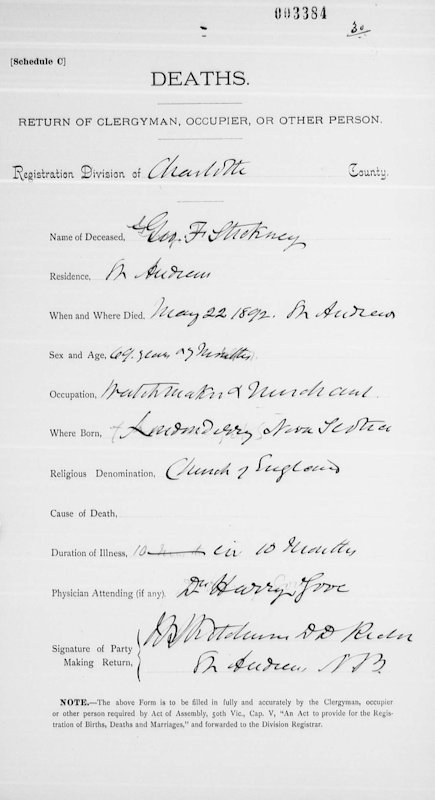 003384
30
[Schedule C]
DEATHS.
RETURN OF CLERGYMAN, OCCUPIER, OR OTHER PERSON.
Registration Division of Charlotte County.
Name of Deceased, Geo. F. Stickney
Residence, St Andrews
When and Where Died, May 22 1892. St Andrews
Sex and Age, 69 years 7 Months
Occupation, Watchmaker & Merchant
Where Born, Londonderry Nova Scotia
Religious Denomination, Church of England
Cause of Death,
Duration of Illness, 10 in 10 Months
Physician Attending (if any). Dr Harry Gove
Signature of Party Making Return, Ketchum D D Rector
St Andrews N B.
NOTE.—The above Form is to be filled in fully and accurately by the Clergyman, occupier
or other person required by Act of Assembly, 50th Vic., Cap. V, "An Act to provide for the Regis-
tration of Births, Deaths and Marriages," and forwarded to the Division Registrar.